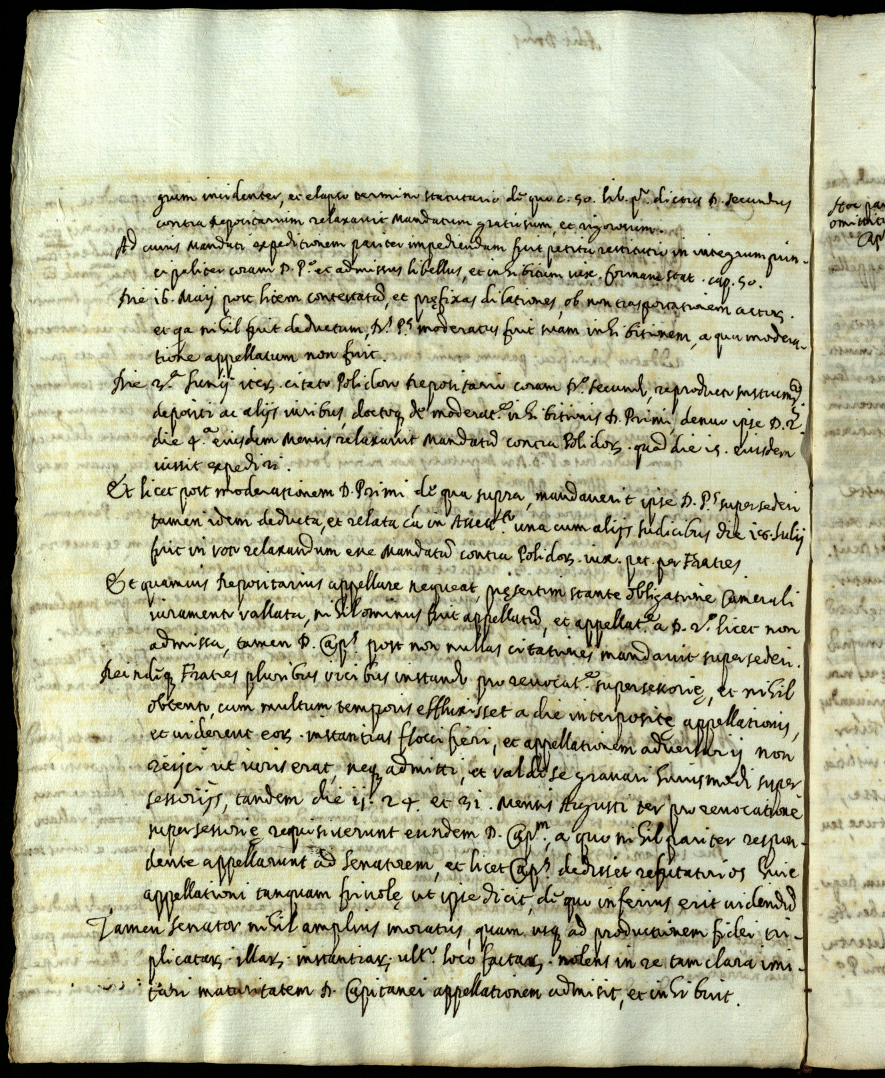 grum incidenter, et elapso termino statutario de quo c. 50. lib. p.º dictus D. secundus
contra Depositarium relaxavit Mandatum gratiosum, et rigorosum.
Ad cuius Mandati expeditionem pariter impediendam fuit petita restitutio in integrum prin-
cipaliter coram D. P.º et admissus libellus, et inhibitum iux. formam stat. cap. 50.
Die 16. Maij post litem contestatã, et pręfixas dilationes, ob non trasportationem actor.
et qa nihil fuit deductum, D. P.s moderatus fuit suam inhibitionem, a qua modera-
tione appellatum non fuit.
Die 3.a Junij iter. citato Polidoro Depositario coram D.º secundo, reproducto Instrum.º
depositi ac alijs iuribus, doctoq; de moderat.e inhibitionis D. Primi, denuo ipse D. 2.s
die 4.a eiusdem Mensis relaxavit Mandatũ contra Polidor. quod die 15. eiusdem
iussit expediri.
Et licet post moderationem D. Primi de qua supra, mandaverit ipse D. P.s supersederi
tamen idem deducta, et relata cã in una cum alijs Judicibus die 16. Julij
fuit in voto relaxandum esse Mandatũ contra Polidor. iux. pet. per Fratres
Et quamvis Depositarius appellare nequeat pręsertim stante obligatione Camerali
iuramento vallata, nihilominus fuit appellatũ, et appellat.e a D. 2.º licet non
admissa, tamen D. Cap.s post non nullas citationes mandavit supersederi.
Deindeq; Fratres pluribus vicibus instando pro revocat.e supersessorię, et nihil
obtento, cum multum temporis effluxisset a die interpositę appellationis,
et viderent eor. instantias flocci fieri, et appellationem adversarij non
reijci ut iuris erat, neq; admitti, et valde se gravari huiusmodi super
sessorijs, tandem die 11. 24. et 31. Mensis Augusti ter pro revocatione
supersessorię requisiverunt eundem D. Cap.m, a quo nihil pariter respon-
dente appellarunt ad Senatorem, et licet Cap.s dedisset refutatorios huic
appellationi tanquam frivolę ut ipse dicit, de quo inferius erit videndũ
Tamen Senator nihil amplius moratus, quam usq; ad productionem fidei tri-
plicatar. illar. instantiar. ult.º loco factar. nolens in re tam clara imi-
tari maturitatem D. Capitanei appellationem admisit, et inhibuit.